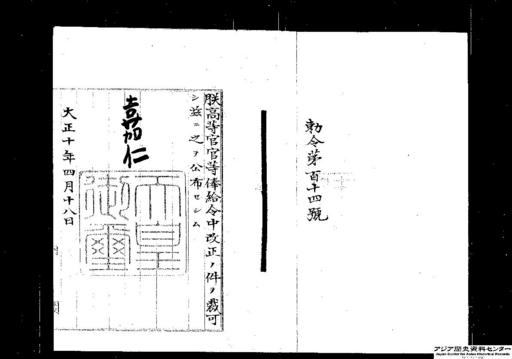 勅令第百十四號
朕高等官官等俸給令中改正ノ件ヲ裁可
シ茲ニ之ヲ公布セシム
嘉仁
天皇御璽
大正十年四月十八日
アジア歴史資料センター
Japan Center for Asian Historical Records